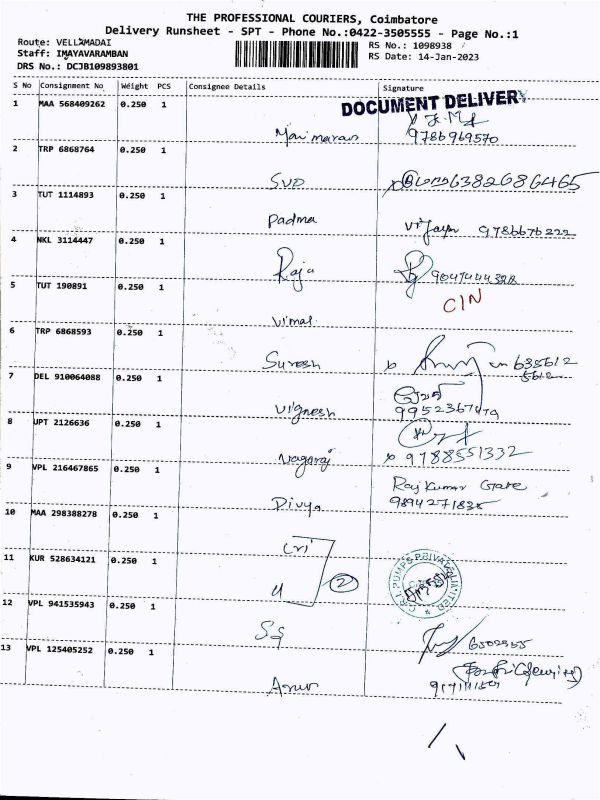 THE PROFESSIONAL COURIERS, Coimbatore
Delivery Runsheet - SPT - Phone No.:0422-3505555 - Page No.:1
Route: VELLAMADAI
RS No.: 1098938
Staff: IMAYAVARAMBAN
RS Date: 14-Jan-2023
DRS No.: DCJB109893801
S No Consignment No Weight PCS Consignee Details Signature
DOCUMENT DELIVERY
1 MAA 568409262 0.250 1
Manimaran 9786969570
2 TRP 6868764 0.250 1
SVD 6382686465
3 TUT 1114893 0.250 1
Padma Vijayn 9786676222
4 NKL 3114447 0.250 1
Raja 9047444328
5 TUT 190891 0.250 1
CIN
Vimal
6 TRP 6868593 0.250 1
Suresh 635612
5612
7 DEL 910064088 0.250 1
Vignesh 9952367479
8 UPT 2126636 0.250 1
Nagaraj 9788551332
9 VPL 216467865 0.250 1
Divya Rajkumar Gate
9894271835
10 MAA 298388278 0.250 1
Cri
11 KUR 528634121 0.250 1
4 2
C.R.I. PUMPS PRIVATE LIMITED
12 VPL 941535943 0.250 1
SS 6502955
13 VPL 125405252 0.250 1
Arun